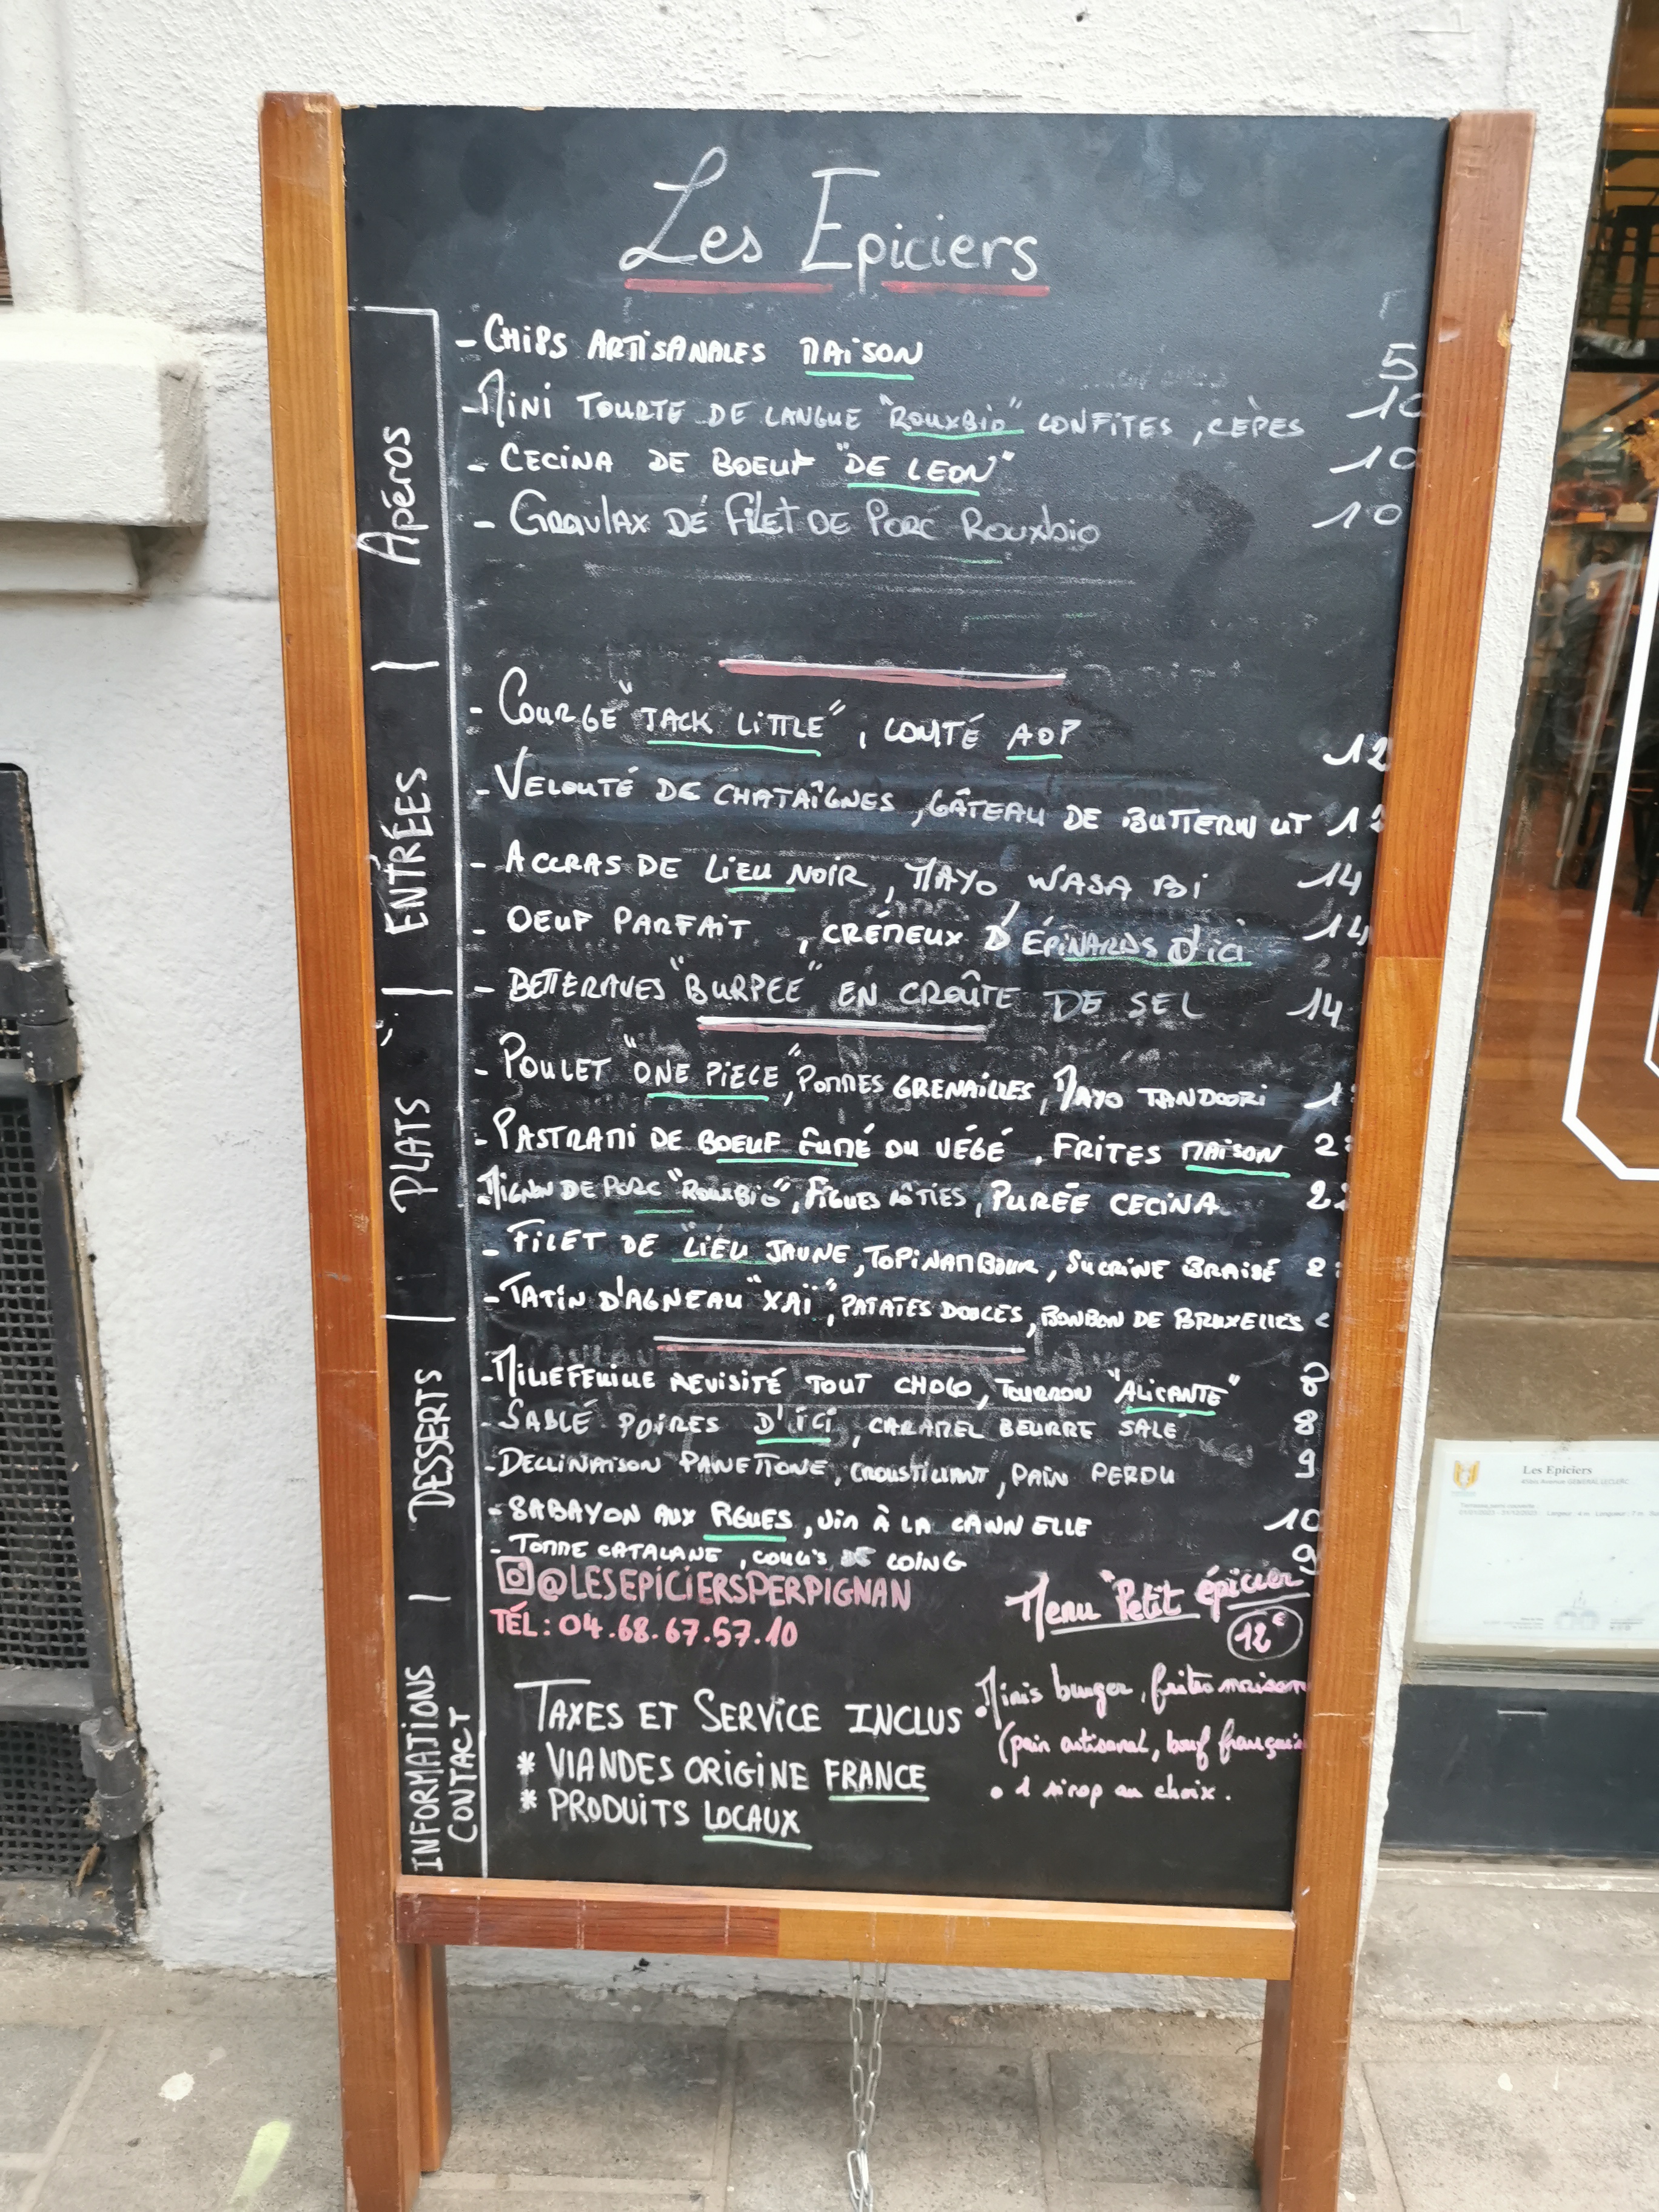 Les Epiciers
Apéros
- CHIPS ARTISANALES MAISON 5
- MINI TOURTE DE LANGUE "ROUXBIO" CONFITES, CÈPES 10
- CECINA DE BOEUF "DE LEON" 10
- GRAVLAX DE FILET DE PORC ROUXBIO 10
ENTRÉES
- COURGE "JACK LITTLE", COMTÉ AOP 12
- VELOUTÉ DE CHATAÎGNES, GÂTEAU DE BUTTERNUT
- ACCRAS DE LIEU NOIR, MAYO WASABI 14
- OEUF PARFAIT, CRÉMEUX D'ÉPINARDS d'ici 14
- BETTERAVES "BURPEE" EN CROÛTE DE SEL 14
PLATS
- POULET "ONE PIECE", POMMES GRENAILLES, MAYO TANDOORI
- PASTRAMI DE BOEUF FUMÉ OU VÉGÉ, FRITES MAISON
- MIGNON DE PORC "ROUXBIO", FIGUES RÔTIES, PURÉE CECINA
- FILET DE "LIEU JAUNE, TOPINAMBOUR, SUCRINE BRAISÉ
- TATIN D'AGNEAU "XAÏ", PATATES DOUCES, BONBON DE BRUXELLES
DESSERTS
- MILLEFEUILLE REVISITÉ TOUT CHOCO, TOURRON "ALICANTE" 8
- SABLÉ POIRES D'ICI, CARAMEL BEURRE SALÉ 8
- DECLINAISON PANETTONE, CROUSTILLANT, PAIN PERDU 9
- SABAYON AUX FIGUES, VIN À LA CANNELLE 10
- TOMME CATALANE, COULIS DE COING 9
INFORMATIONS
CONTACT
@LESEPICIERSPERPIGNAN
TÉL: 04.68.67.57.10
TAXES ET SERVICE INCLUS
* VIANDES ORIGINE FRANCE
* PRODUITS LOCAUX
Menu "Petit épicier
12€
• Minis burger, frites maison
(pain artisanal, bœuf français
• 1 sirop au choix.
Les Epiciers